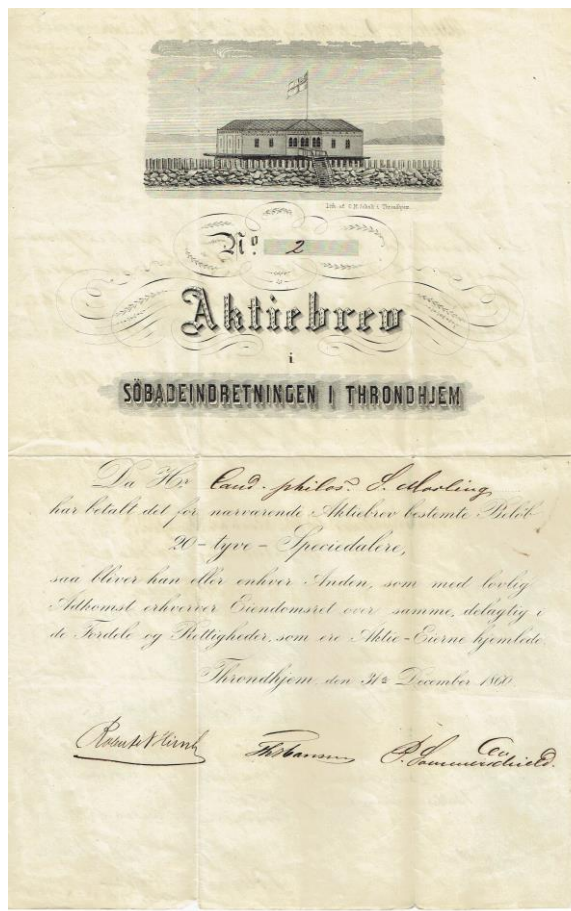 Lith. af
i Throndhjem.
No. 2
Aktiebrev
i
SÖBADEINDRETNINGEN I THRONDHJEM
Da Hr. Cand. philos. S.
har betalt det for nærværende Aktiebrev bestemte Beløb
20 - tyve - Speciedalere,
saa bliver han eller enhver Anden, som med lovlig
Adkomst erhverver Eiendomsret over samme, delagtig i
de Fordele og Rettigheder, som ere Aktie-Eierne hjemlede
Throndhjem, den 31te December 1860